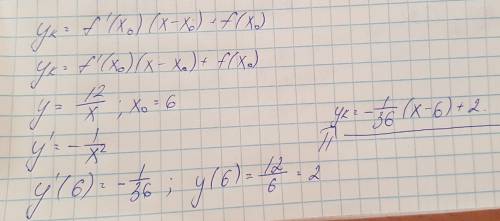 yк = f'(x₀)(x-x₀) + f(x₀)
yк = f'(x₀)(x-x₀) + f(x₀)
y = 12/x ; x₀ = 6
y' = -1/x²
y'(6) = -1/36 ; y(6) = 12/6 = 2
yк = -1/36 (x-6) + 2